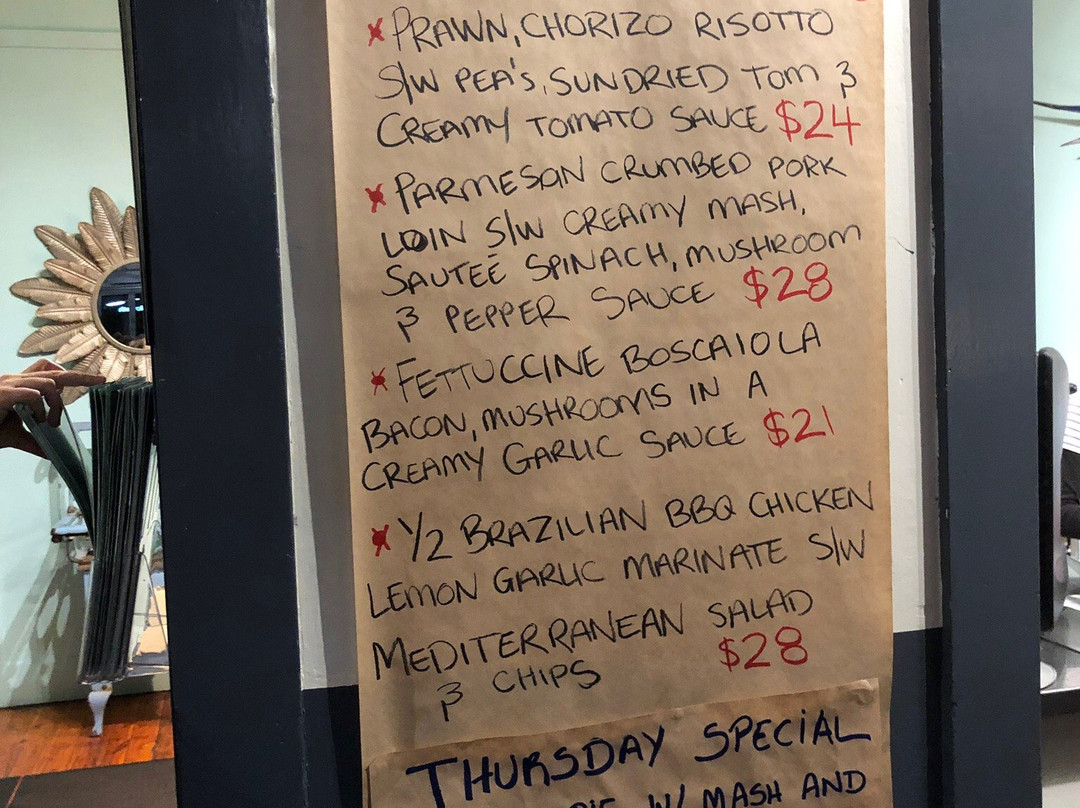 * PRAWN, CHORIZO RISOTTO
S/W PEA'S, SUNDRIED TOM &
CREAMY TOMATO SAUCE $24
* PARMESAN CRUMBED PORK
LOIN S/W CREAMY MASH,
SAUTEÉ SPINACH, MUSHROOM
& PEPPER SAUCE $28
* FETTUCCINE BOSCAIOLA
BACON, MUSHROOMS IN A
CREAMY GARLIC SAUCE $21
* 1/2 BRAZILIAN BBQ CHICKEN
LEMON GARLIC MARINATE S/W
MEDITERRANEAN SALAD
& CHIPS $28
THURSDAY SPECIAL
W/ MASH AND